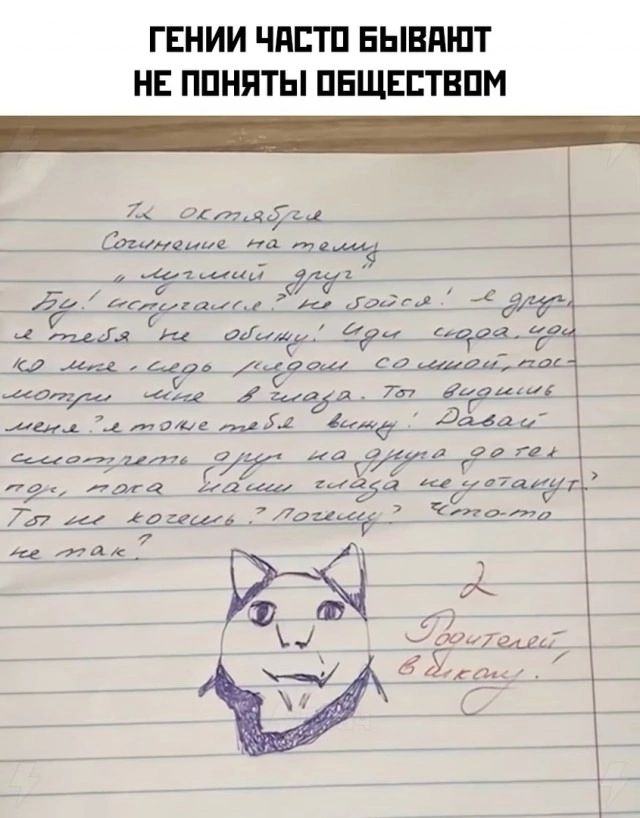 ГЕНИИ ЧАСТО БЫВАЮТ
НЕ ПОНЯТЫ ОБЩЕСТВОМ
12 октября
Сочинение на тему
„лучший друг"
Бу! испугался? не бойся! я друг,
я тебя не обижу! Иди сюда, иди
ко мне, сядь рядом со мной, пос-
мотри мне в глаза. Ты видишь
меня? я тоже тебя вижу! Давай
смотреть друг на друга до тех
пор, пока наши глаза не устанут?
Ты не хочешь? Почему? Что-то
не так?
2
Родителей
в школу!